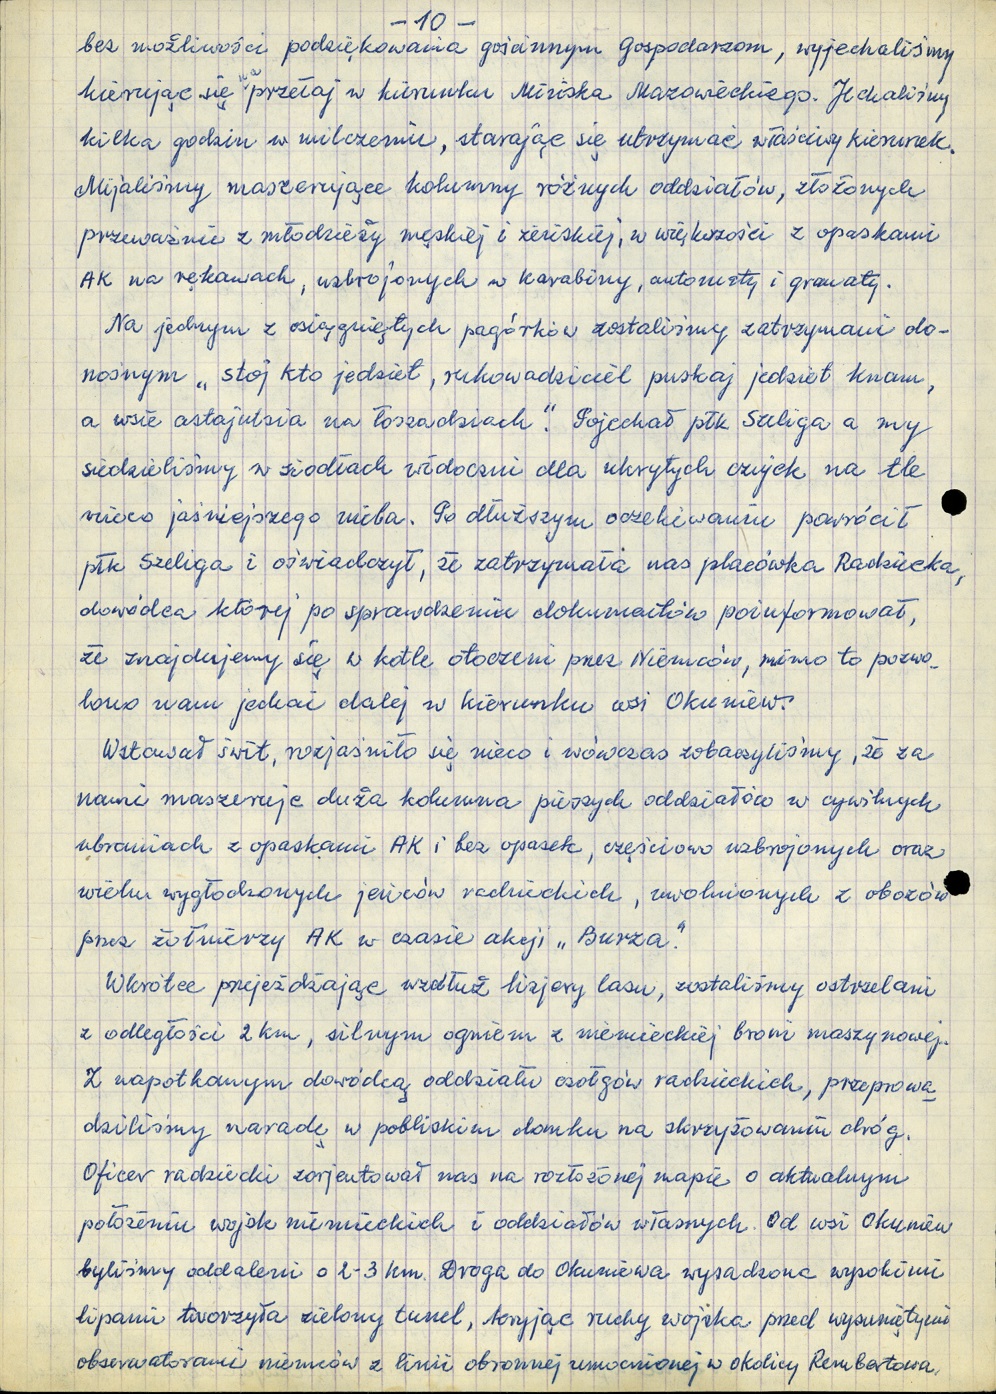 - 10 -
bez możliwości podziękowania gościnnym Gospodarzom, wyjechaliśmy
kierując się na przełaj w kierunku Mińska Mazowieckiego. Jechaliśmy
kilka godzin w milczeniu, starając się utrzymać właściwy kierunek.
Mijaliśmy maszerujące kolumny różnych oddziałów, złożonych
przeważnie z młodzieży męskiej i żeńskiej, w większości z opaskami
AK na rękawach, uzbrojonych w karabiny, automaty i granaty.
Na jednym z osiągniętych pagórków zostaliśmy zatrzymani do-
nośnym „stój kto jedziet, rukowadziciel puskaj jedziet knam,
a wsie astajutsia na łoszadziach". Pojechał płk Szeliga a my
siedzieliśmy w siodłach widoczni dla ukrytych czujek na tle
nieco jaśniejszego nieba. Po dłuższym oczekiwaniu powrócił
płk Szeliga i oświadczył, że zatrzymała nas placówka Radziecka,
dowódca której po sprawdzeniu dokumentów poinformował,
że znajdujemy się w kotle otoczeni przez Niemców, mimo to pozwo-
lono nam jechać dalej w kierunku wsi Okuniew.
Wstawał świt, rozjaśniło się nieco i wówczas zobaczyliśmy, że za
nami maszeruje duża kolumna pieszych oddziałów w cywilnych
ubraniach z opaskami AK i bez opasek, częściowo uzbrojonych oraz
wielu wygłodzonych jeńców radzieckich, uwolnionych z obozów
przez żołnierzy AK w czasie akcji „Burza".
Wkrótce przejeżdżając wzdłuż lizjery lasu, zostaliśmy ostrzelani
z odległości 2 km, silnym ogniem z niemieckiej broni maszynowej.
Z napotkanym dowódcą oddziału czołgów radzieckich, przeprowa
dziliśmy naradę w pobliskim domku na skrzyżowaniu dróg.
Oficer radziecki zorjentował nas na rozłożonej mapie o aktualnym
położeniu wojsk niemieckich i oddziałów własnych. Od wsi Okuniew
byliśmy oddaleni o 2-3 km. Droga do Okuniewa wysadzona wysokimi
lipami tworzyła zielony tunel, kryjąc ruchy wojska przed wysuniętymi
obserwatorami niemców z linii obronnej umocnionej w okolicy Rembertowa.